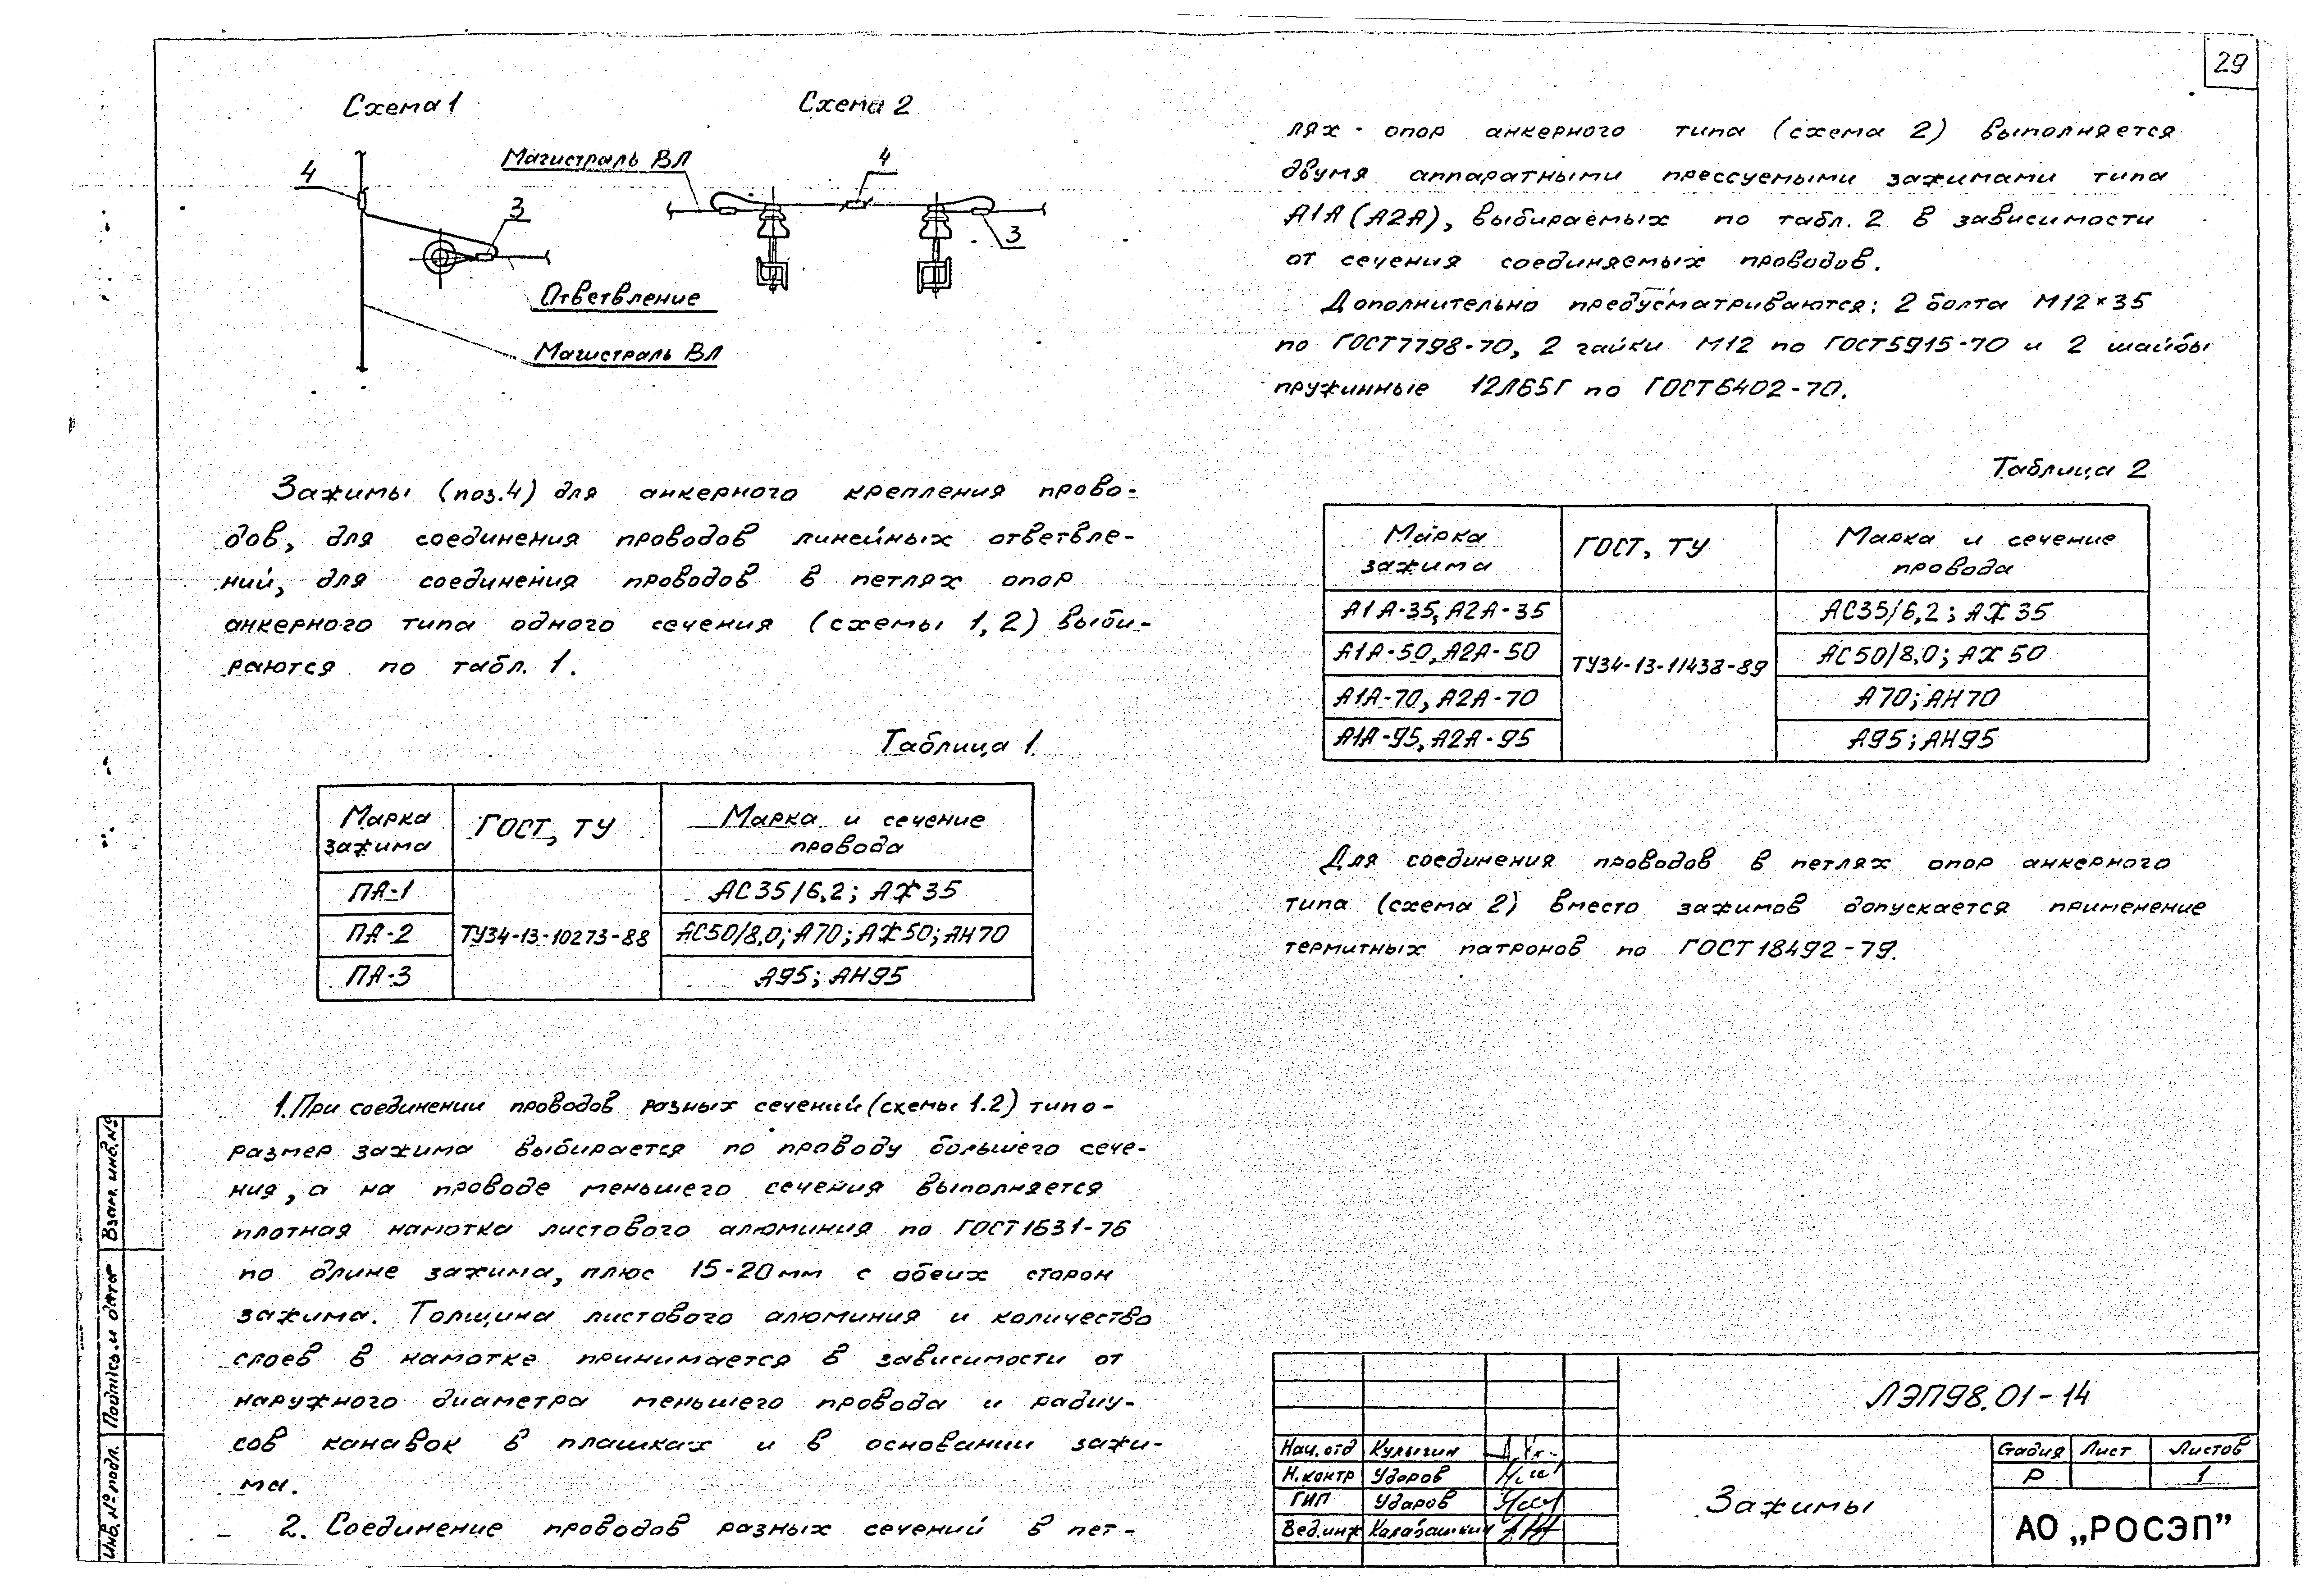 29
Схема 1
Схема 2
4
3
Магистраль ВЛ
4
3
Ответвление
Магистраль ВЛ
Зажимы (поз.4) для анкерного крепления прово-
дов, для соединения проводов линейных ответвле-
ний, для соединения проводов в петлях опор
анкерного типа одного сечения (схемы 1,2) выби-
раются по табл. 1.
Таблица 1
Марка зажима | ГОСТ, ТУ | Марка и сечение провода
ПА-1 | ТУ34-13-10273-88 | АС35/6,2; АЖ35
ПА-2 | АС50/8,0; А70; АЖ50; АН70
ПА-3 | А95; АН95
1. При соединении проводов разных сечений (схемы 1.2) типо-
размер зажима выбирается по проводу большего сече-
ния, а на проводе меньшего сечения выполняется
плотная намотка листового алюминия по ГОСТ1631-76
по длине зажима, плюс 15-20мм с обеих сторон
зажима. Толщина листового алюминия и количество
слоев в намотке принимается в зависимости от
наружного диаметра меньшего провода и радиу-
сов канавок в плашках и в основании зажи-
ма.
2. Соединение проводов разных сечений в пет-
лях - опор анкерного типа (схема 2) выполняется
двумя аппаратными прессуемыми зажимами типа
А1А (А2А), выбираемых по табл. 2 в зависимости
от сечения соединяемых проводов.
Дополнительно предусматриваются: 2 болта М12×35
по ГОСТ7798-70, 2 гайки М12 по ГОСТ5915-70 и 2 шайбы
пружинные 12Л65Г по ГОСТ6402-70.
Таблица 2
Марка зажима | ГОСТ, ТУ | Марка и сечение провода
А1А-35, А2А-35 | ТУ34-13-11438-89 | АС35/6,2; АЖ35
А1А-50, А2А-50 | АС50/8,0; АЖ50
А1А-70, А2А-70 | А70; АН70
А1А-95, А2А-95 | А95; АН95
Для соединения проводов в петлях опор анкерного
типа (схема 2) вместо зажимов допускается применение
термитных патронов по ГОСТ 18492-79.
ЛЭП98.01-14
Нач.отд Кулыгин
Н.контр Ударов
ГИП Ударов
Вед.инж Калабашкин
Зажимы
Стадия Лист Листов
Р 1
АО „РОСЭП”
Взам. инв.№
Подпись и дата
Инв.№ подл.